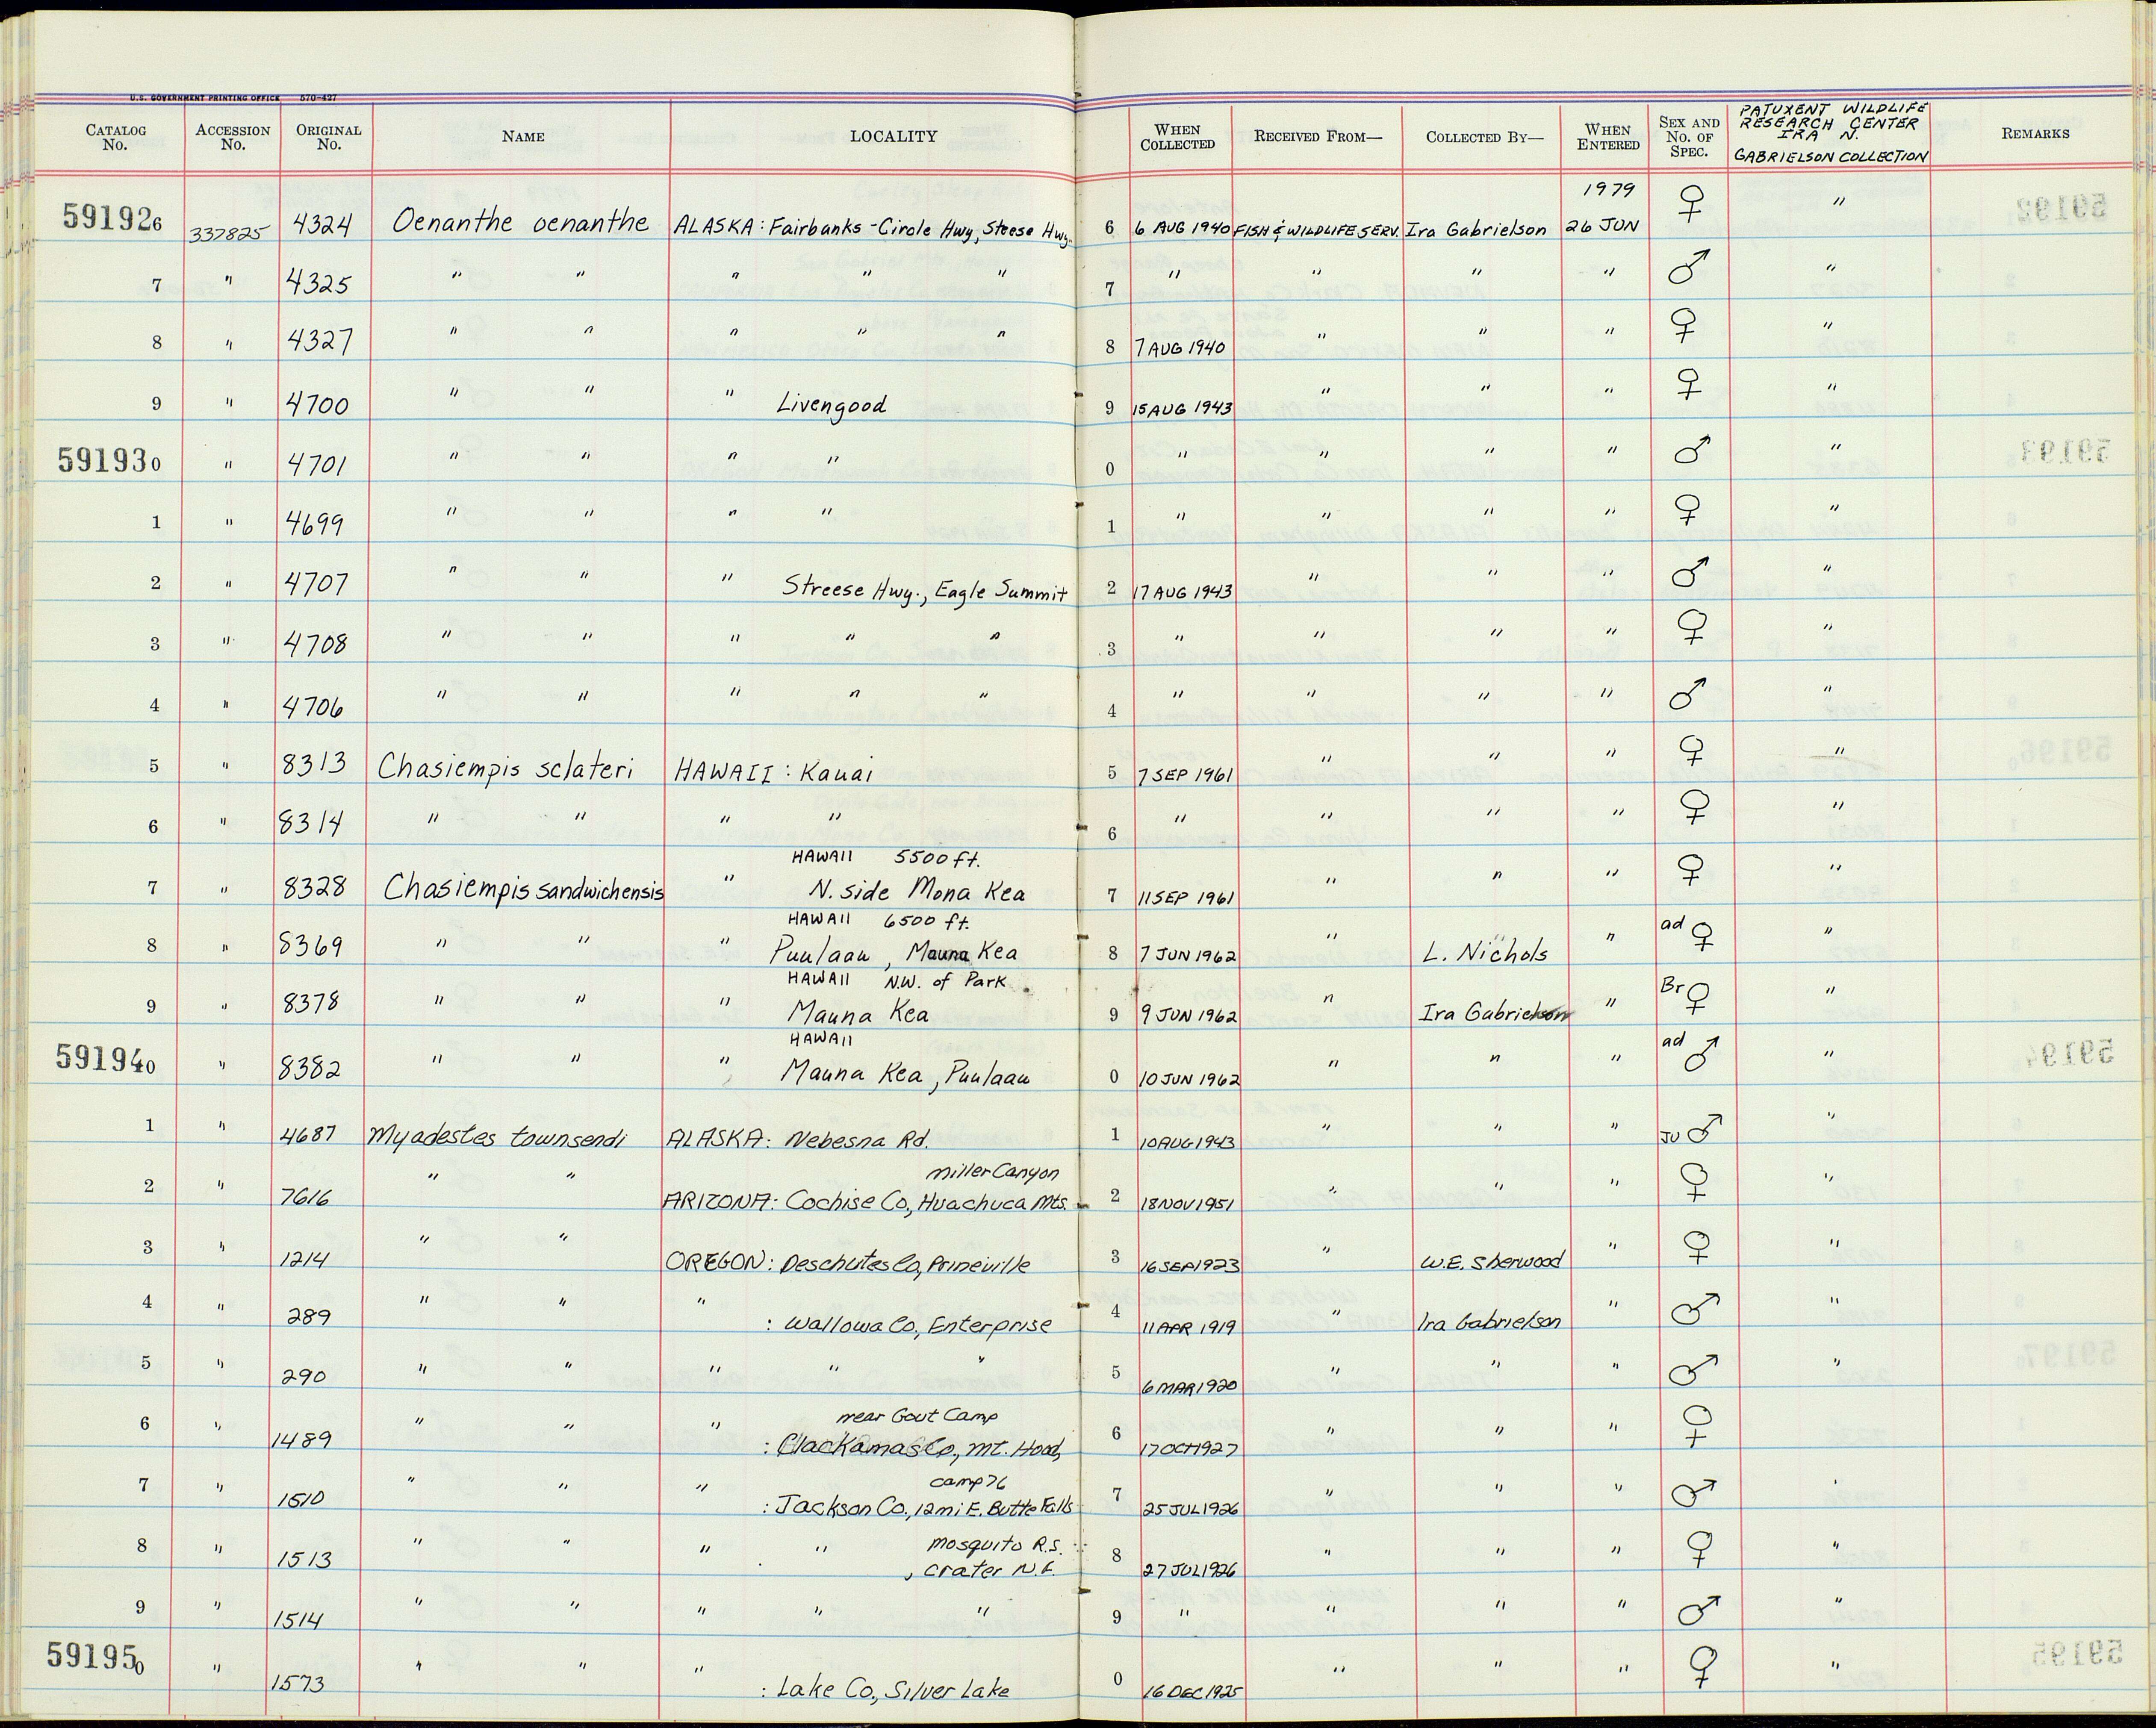 U.S. GOVERNMENT PRINTING OFFICE 570-427
CATALOG No. ACCESSION No. ORIGINAL No. NAME LOCALITY WHEN COLLECTED RECEIVED FROM— COLLECTED BY— WHEN ENTERED SEX AND No. OF SPEC. PATUXENT WILDLIFE RESEARCH CENTER IRA N. GABRIELSON COLLECTION REMARKS
591926 337825 4324 Oenanthe oenanthe ALASKA: Fairbanks-Circle Hwy, Steese Hwy. 6 6 AUG 1940 FISH & WILDLIFE SERV. Ira Gabrielson 1979 26 JUN ♀ "
7 " 4325 " " " " " 7 " " " " ♂ "
8 " 4327 " " " " " 8 7 AUG 1940 " " " ♀ "
9 " 4700 " " " Livengood 9 15 AUG 1943 " " " ♀ "
591930 " 4701 " " " " 0 " " " " ♂ "
1 " 4699 " " " " 1 " " " " ♀ "
2 " 4707 " " " Streese Hwy., Eagle Summit 2 17 AUG 1943 " " " ♂ "
3 " 4708 " " " " " 3 " " " " ♀ "
4 " 4706 " " " " " 4 " " " " ♂ "
5 " 8313 Chasiempis sclateri HAWAII: Kauai 5 7 SEP 1961 " " " ♀ "
6 " 8314 " " " " 6 " " " " ♀ "
HAWAII 5500 ft.
7 " 8328 Chasiempis sandwichensis " N. side Mona Kea 7 11 SEP 1961 " " " ♀ "
HAWAII 6500 ft.
8 " 8369 " " " Puulaau, Mauna Kea 8 7 JUN 1962 " L. Nichols " ad ♀ "
HAWAII N.W. of Park
9 " 8378 " " " Mauna Kea 9 9 JUN 1962 " Ira Gabrielson " Br ♀ "
HAWAII
591940 " 8382 " " " Mauna Kea, Puulaau 0 10 JUN 1962 " " " ad ♂ "
1 " 4687 Myadestes townsendi ALASKA: Nebesna Rd. 1 10 AUG 1943 " " " JU ♂ "
Miller Canyon
2 " 7616 " " ARIZONA: Cochise Co., Huachuca Mts. 2 18 NOV 1951 " " " ♀ "
3 " 1214 " " OREGON: Deschutes Co, Prineville 3 16 SEP 1923 " W.E. Sherwood " ♀ "
4 " 289 " " " : Wallowa Co, Enterprise 4 11 APR 1919 " Ira Gabrielson " ♂ "
5 " 290 " " " " " 5 6 MAR 1920 " " " ♂ "
near Govt Camp
6 " 1489 " " " : Clackamas Co, Mt. Hood, 6 17 OCT 1927 " " " ♀ "
camp 76
7 " 1510 " " " : Jackson Co., 12 mi E. Butte Falls 7 25 JUL 1926 " " " ♂ "
mosquito R.S.
8 " 1513 " " " " , crater N.F. 8 27 JUL 1926 " " " ♀ "
9 " 1514 " " " " " 9 " " " " ♂ "
591950 " 1573 " " " : Lake Co., Silver Lake 0 16 DEC 1925 " " " ♀ "